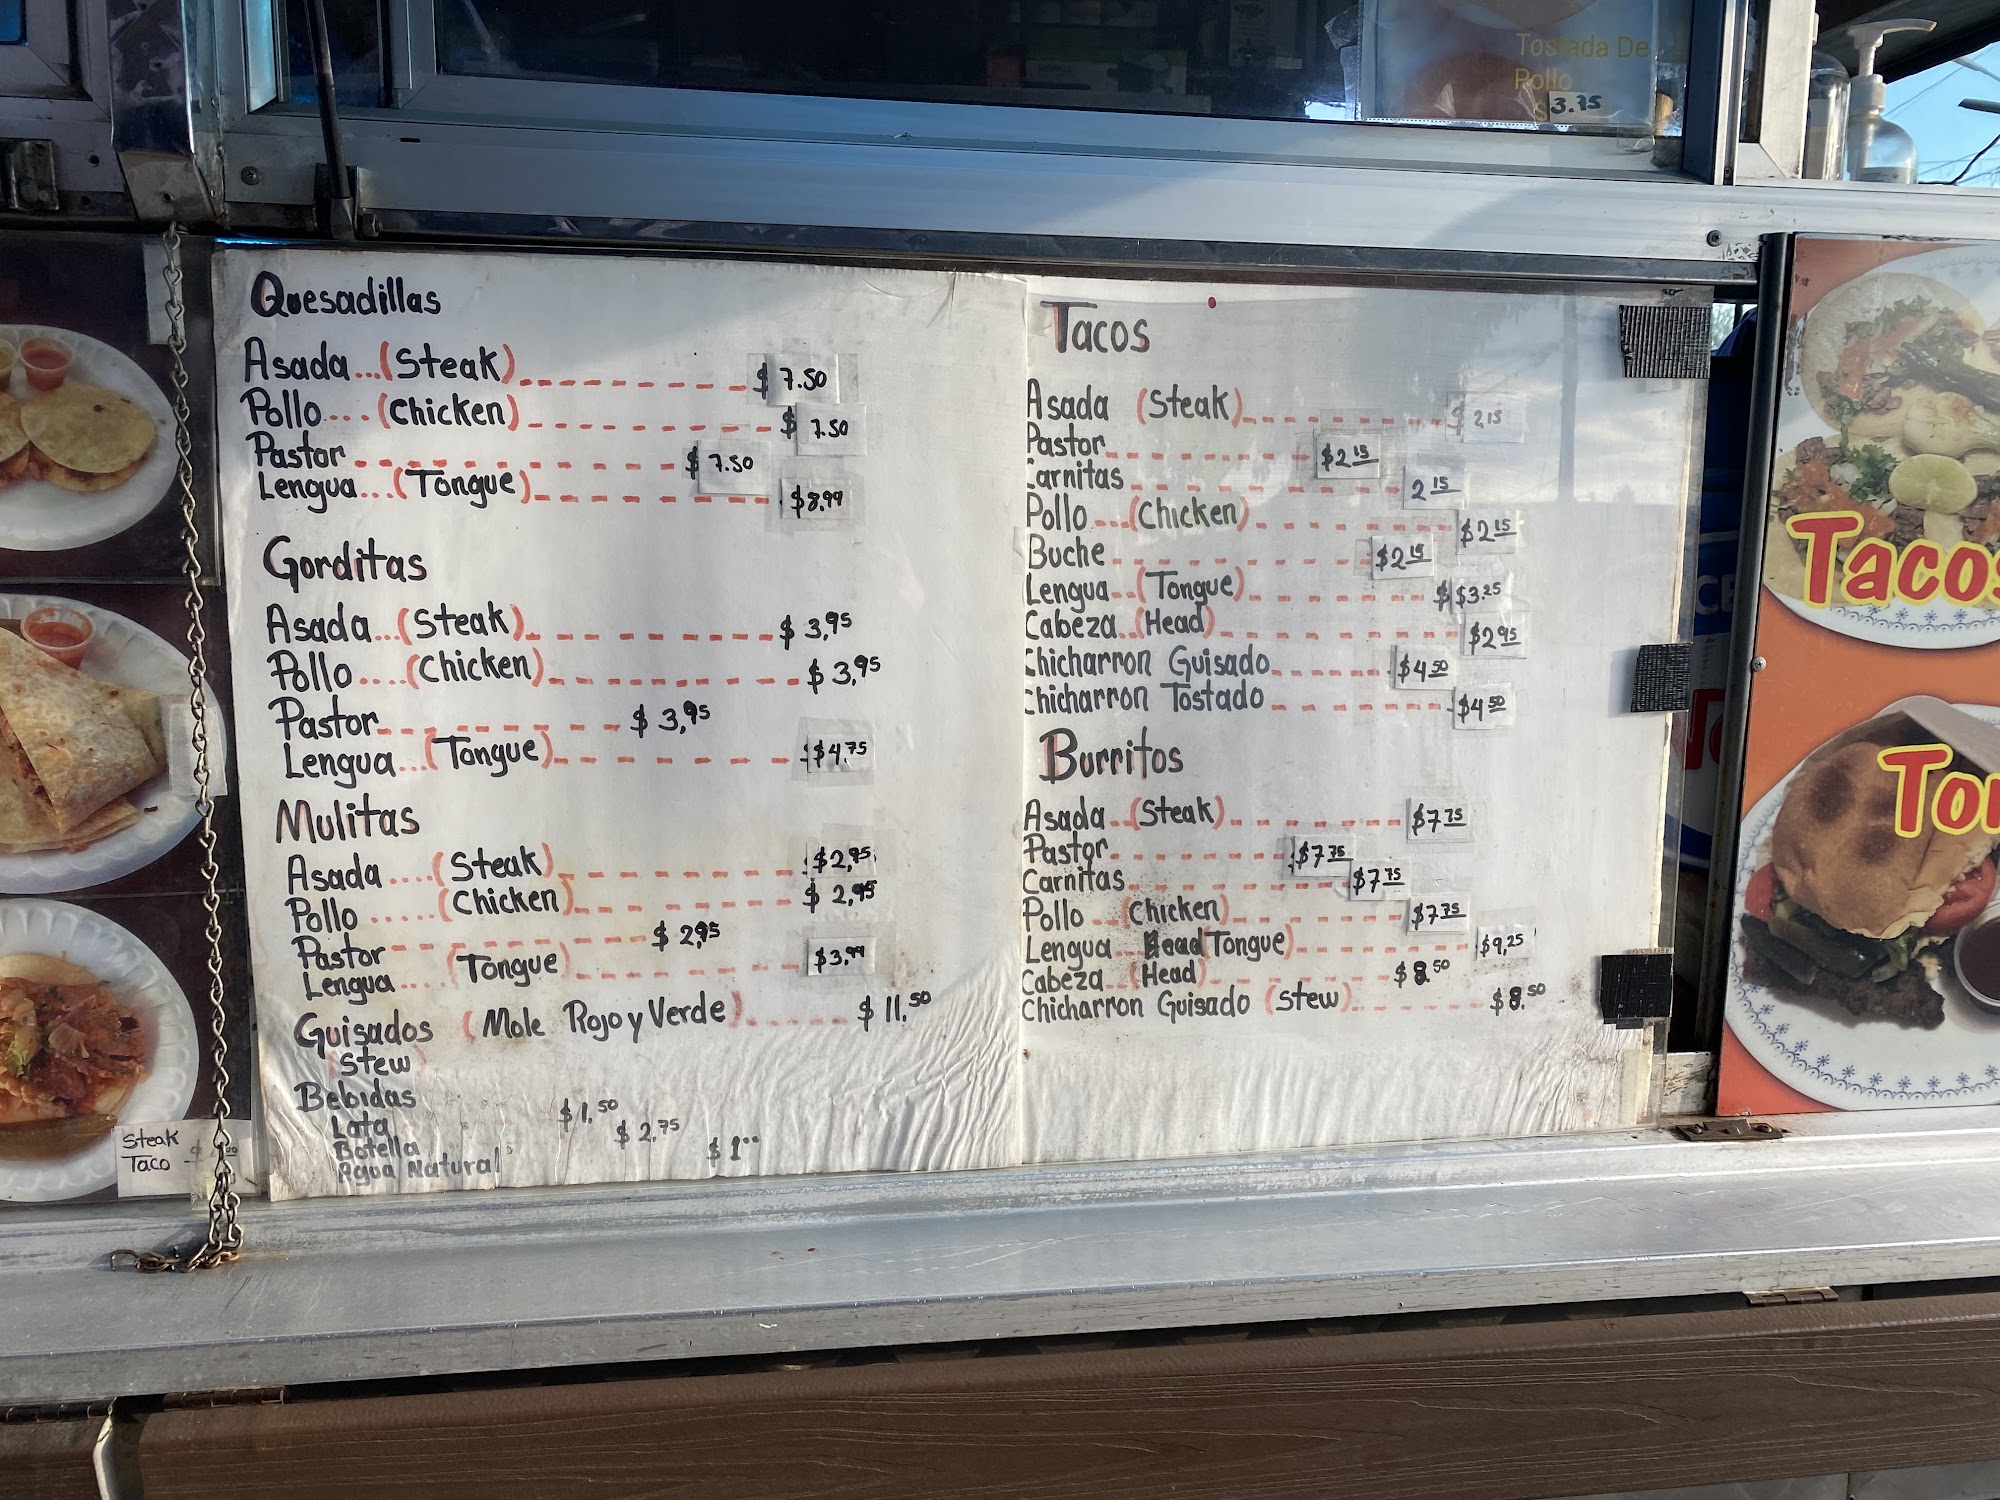 Tostada De
Pollo
$3.75
Quesadillas
Asada...(Steak)------------$ 7.50
Pollo....(Chicken)------------$ 7.50
Pastor------------$ 7.50
Lengua...(Tongue)------------$8.99
Gorditas
Asada...(Steak)------------$ 3.95
Pollo....(Chicken)------------$ 3.95
Pastor------------$ 3.95
Lengua...(Tongue)------------$4.75
Mulitas
Asada....(Steak)------------$2.95
Pollo......(Chicken)------------$ 2.95
Pastor------------$ 2.95
Lengua....(Tongue)------------$3.99
Guisados (Mole Rojo y Verde)------$ 11.50
Stew
Bebidas
Lata $1.50
Botella $2.75
Agua Natural $1
Tacos
Asada (Steak)------------$ 2.15
Pastor------------$2.15
Carnitas------------2.15
Pollo...(Chicken)------------$2.15
Buche------------$2.15
Lengua..(Tongue)------------$ $3.25
Cabeza..(Head)------------$2.95
Chicharron Guisado------$4.50
Chicharron Tostado------$4.50
Burritos
Asada..(Steak)------------$7.75
Pastor------------$7.75
Carnitas------------$7.75
Pollo...(Chicken)------------$7.75
Lengua..Head Tongue)------------$9.25
Cabeza..(Head)------------$8.50
Chicharron Guisado (Stew)------$8.50
Steak
Taco
Tacos